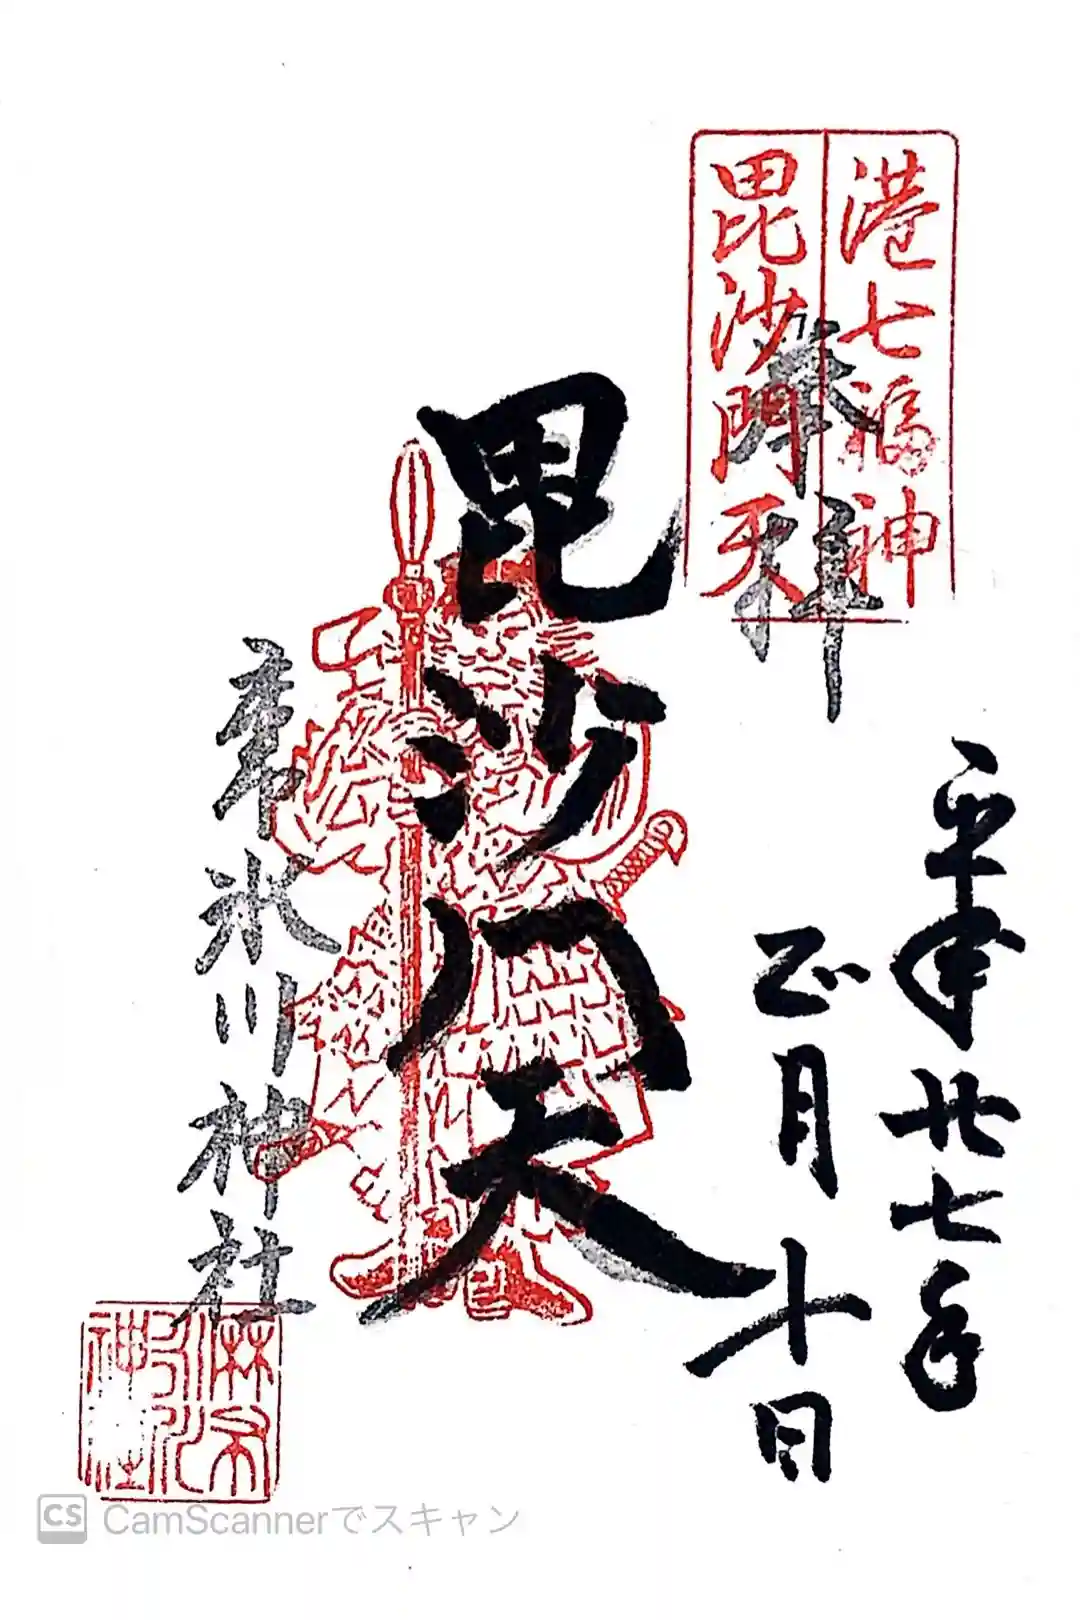 港七福神
毘沙門天
奉拝
平成廿七年
正月十日
毘沙门天
麻布氷川神社
麻布
氷川
神社
CS CamScannerでスキャン